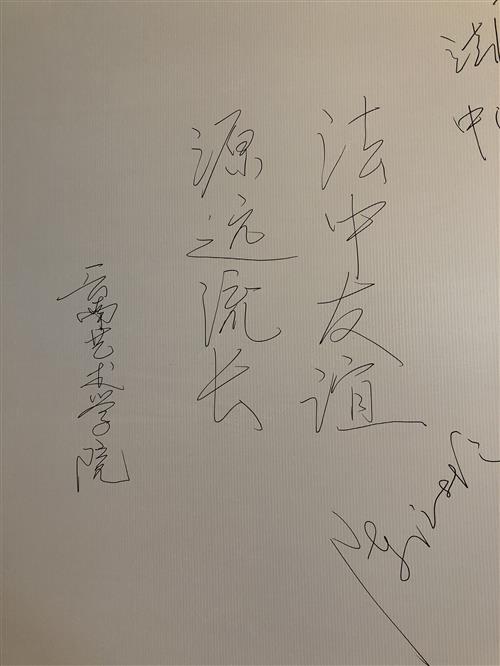 中
法中友谊
源远流长
云南艺术学院